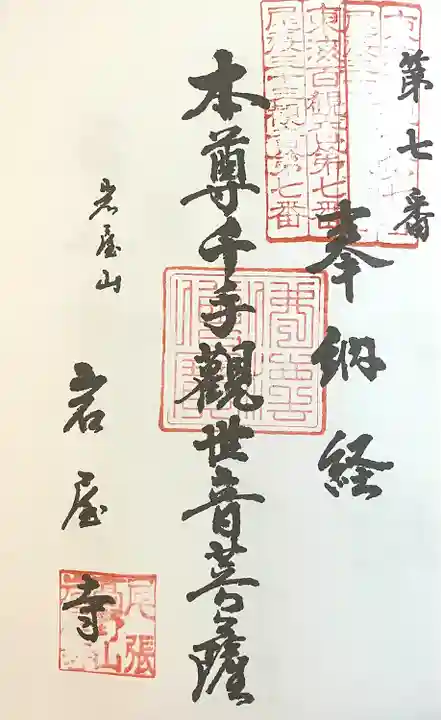 第七番
奉納経
本尊千手觀世音菩薩
岩屋山
岩屋寺
東海百観音第七番
尾張三十三観音第七番
尾張
高野山